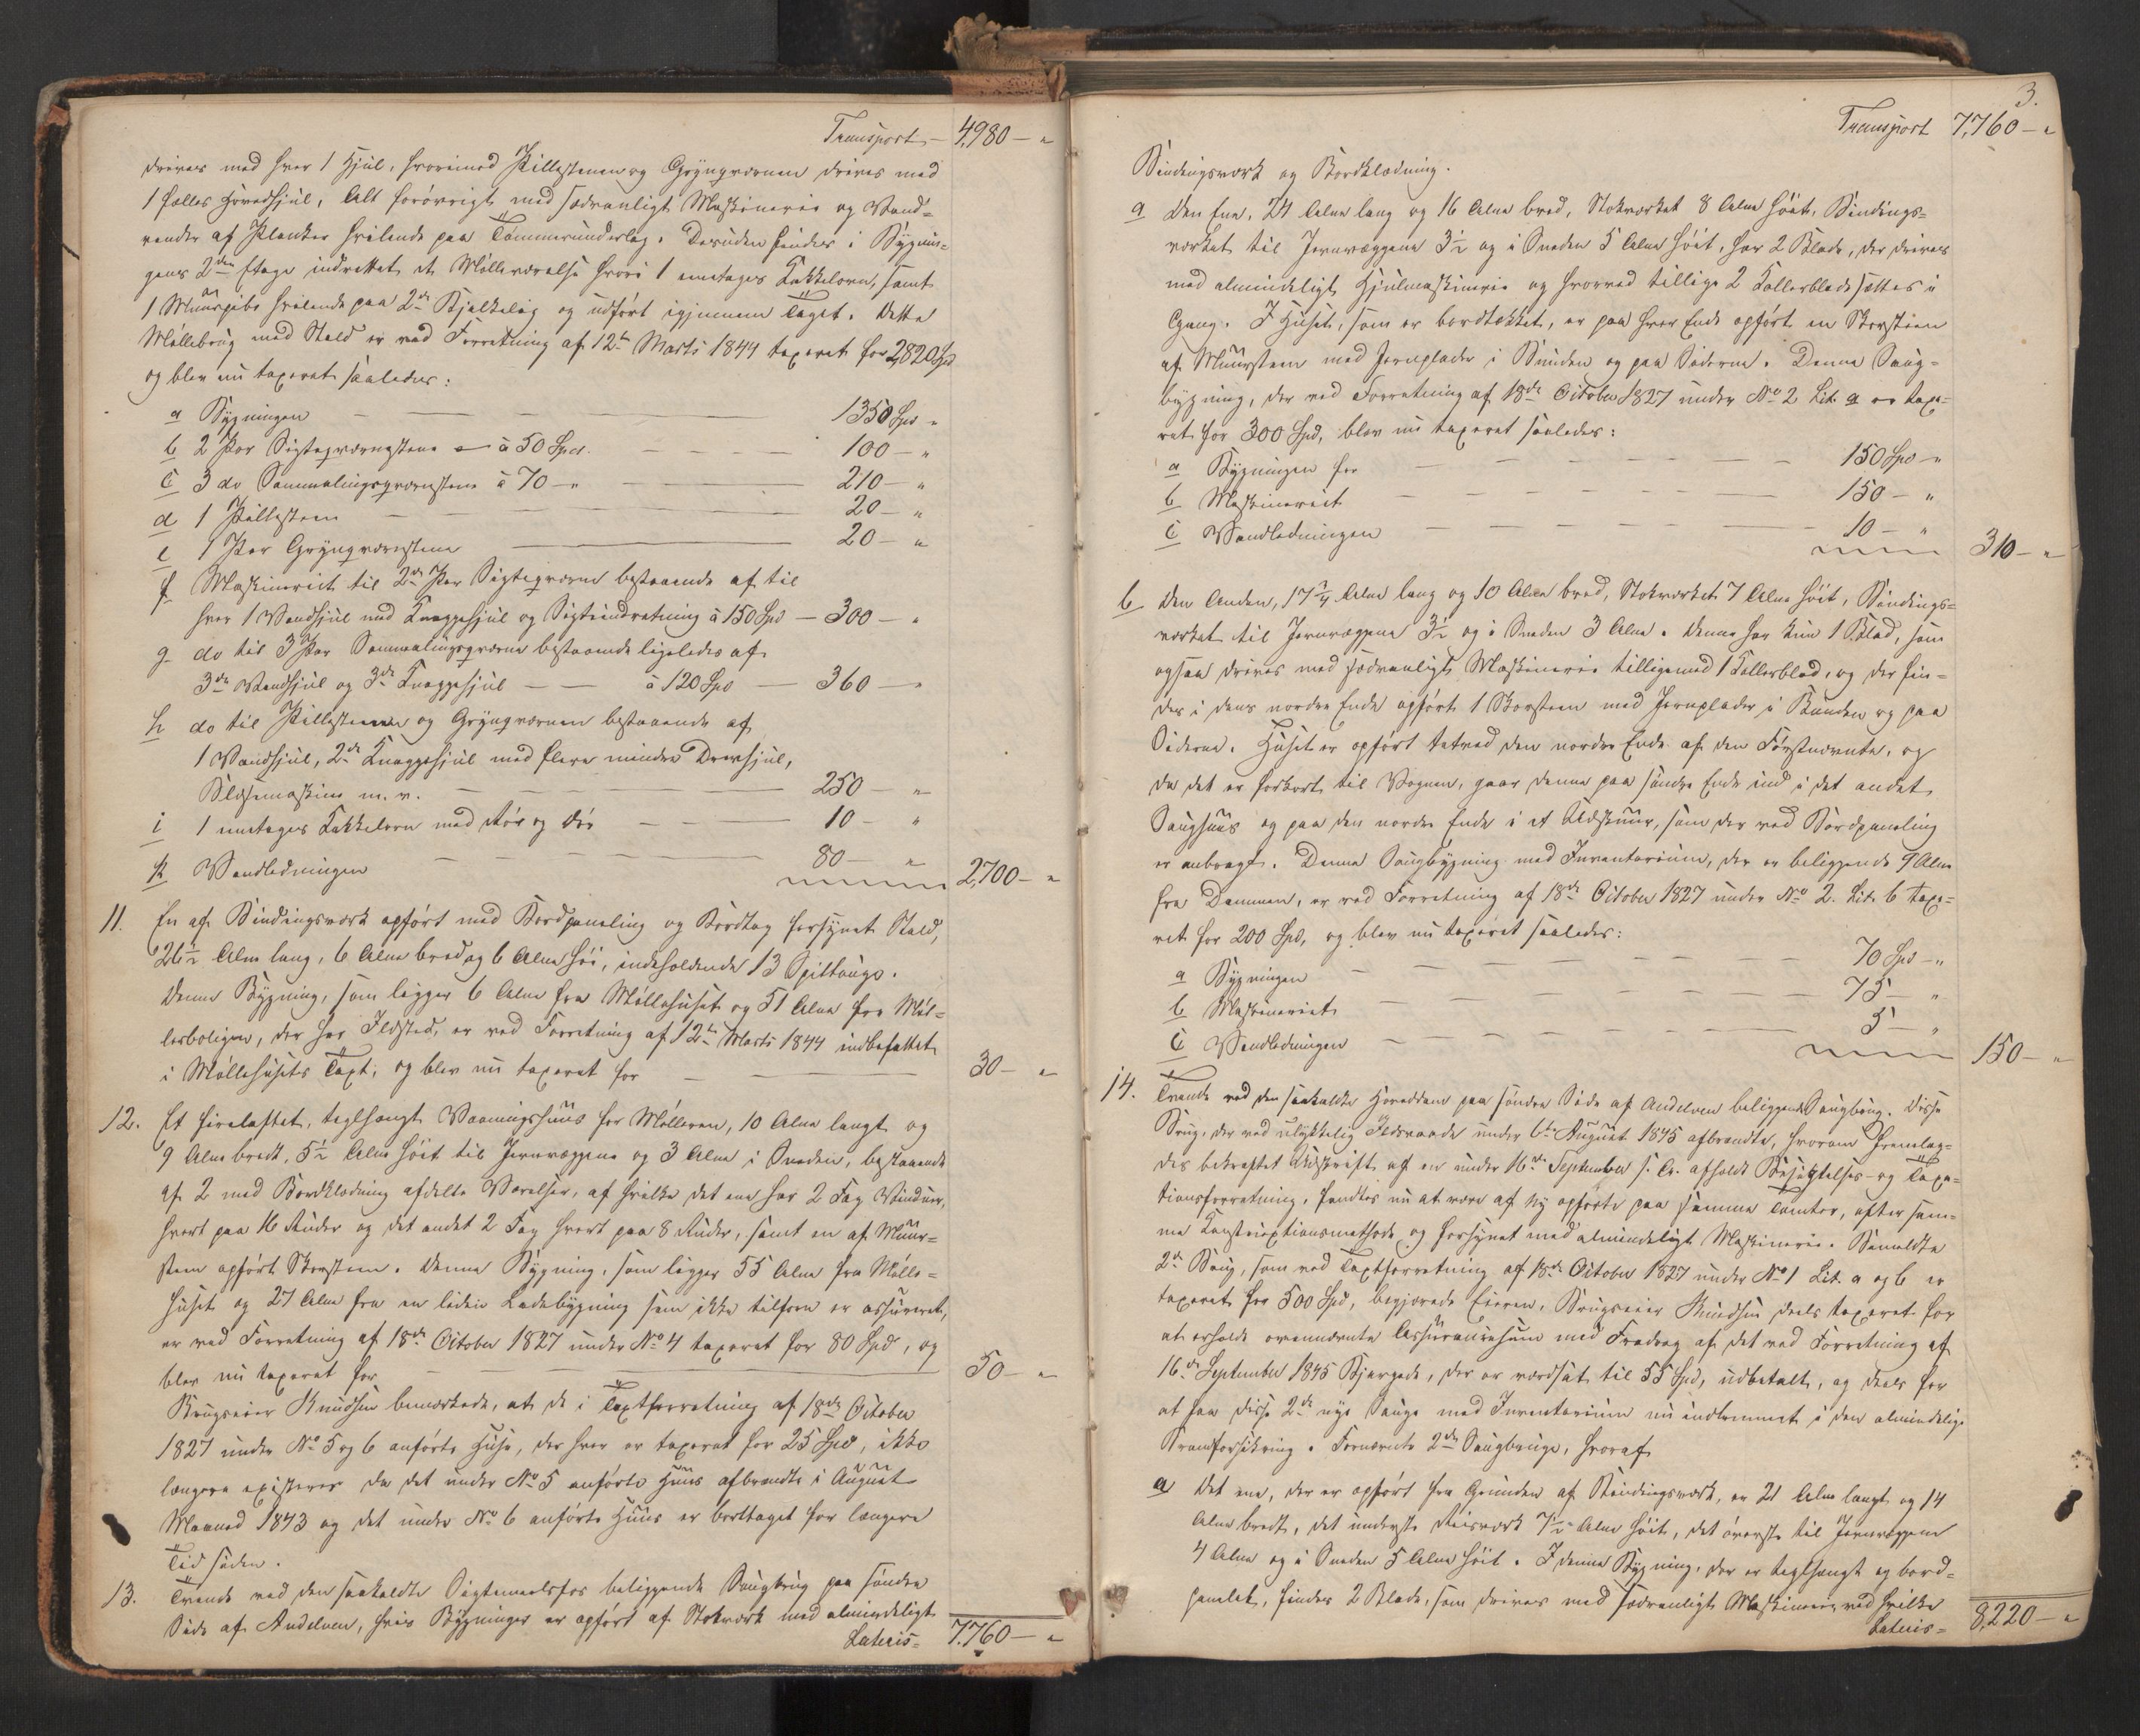 Transport - 4,980 - "
drives med hver 1 Hjul, hvorimod Pillestenen og Grynqværnen drives med
1 fælles Hovedhjul, Alt forövrigt med sædvanligt Maskinerie og Vand-
render af Planker hvilende paa Tømmerunderlag. Desuden findes i Bygnin-
gens 2den Etage indrettet et Mølleværelse hvori 1 eenetages Kakkelovn, samt
1 Muurpibe hvilende paa 2de Bjelkelag og udført igjennem Taget. Dette
Møllebrug med Stald er ved Forretning af 12te Marts 1844 taxeret for 2,820 Spd
og blev nu taxeret saaledes:
a Bygningen 1350 Spd "
b 2 Par Sigteqværnstene - à 50 Spd. 100 - "
c 3 do Sammalingsqværnstene à 70 - " 210 - "
d 1 Pillesteen 20 - "
e 1 Par Grynqværnstene 20 - "
f Maskineriet til 2de Par Sigteqværne bestaaende af til
hver 1 Vandhjul med Knaggehjul og Sigteindretning à 150 Spd - 300 - "
g do til 3 Par Sammalingsqværne bestaaende ligeledes af
3de Vandhjul og 3de Knaggehjul - - à 120 Spd - 360 - "
h do til Pillestenen og Grynqværnen bestaaende af
1 Vandhjul, 2de Knaggehjul med flere mindre Drevhjul,
Blæsemaskine m. v. 250 - "
i 1 eenetages Kakkelovn med Rør og Dör 10 - "
k Vandledningen 80 - " 2,700 - "
11. En af Bindingsværk opført med Bordpaneling og Bordtag forsynet Stald,
26½ Alen lang, 6 Alen bred og 6 Alen høi, indeholdende 13 Spiltouge.
Denne Bygning, som ligger 6 Alen fra Møllehuset og 51 Alen fra Møl-
lerboligen, der har Ildsted, er ved Forretning af 12te Marts 1844 indbefattet
i Møllehusets Taxt, og blev nu taxeret for 30 - "
12. Et firelaftet, teglhængt Vaaningshuus for Mølleren, 10 Alen langt og
9 Alen bredt, 5½ Alen høit til Jernvæggene og 3 Alen i Sneden, bestaaende
af 2 med Bordklædning afdelte Værelser, af hvilke det ene har 2 Fag Vinduer,
hvert paa 16 Ruder og det andet 2 Fag hvert paa 8 Ruder, samt en af Muur-
steen opført Skorsteen. Denne Bygning, som ligger 55 Alen fra Mølle-
huset og 27 Alen fra en liden Ladebygning som ikke tilforn er assureret,
er ved Forretning af 18de October 1827 under No 4 taxeret for 80 Spd, og
blev nu taxeret for 50 - "
Brugseier Knudsen bemærkede, at de i Taxtforretning af 18de October
1827 under No 5 og 6 anførte Huse, der hver er taxeret for 25 Spd, ikke
længere existerer da det under No 5 anførte Huus afbrændte i August
Maaned 1843 og det under No 6 anførte Huus er borttaget for længere
Tid siden.
13. Tvende ved den saakaldte Sigtemoelsfos beliggende Saugbrug paa søndre
Side af Andelven, hvis Bygninger er opført af Stokværk med almindeligt
Lateris - 7,760 - "
3.
Transport 7,760 - "
Bindingsværk og Bordklædning.
a Den Ene, 24 Alen lang og 16 Alen bred, Stokværket 8 Alen høit, Bindings-
værket til Jernvæggene 3½ og i Sneden 5 Alen høit, har 2 Blade, der drives
med almindeligt Hjulmaskinerie og hvorved tillige 2 Kallerblade sættes i
Gang. I Huset, som er bordtækket, er paa hver Ende opført en Skorsteen
af Muursteen med Jernplader i Bunden og paa Siderne. Denne Saug-
bygning, der ved Forretning af 18de October 1827 under No 2 Lit. a er taxe-
ret for 300 Spd, blev nu taxeret saaledes:
a Bygningen for 150 Spd - "
b Maskineriet 150 - "
c Vandledningen 10 - " 310 - "
b Den Anden, 17¾ Alen lang og 10 Alen bred, Stokværket 7 Alen høit, Bindings-
værket til Jernvæggene 3½ og i Sneden 3 Alen. Denne har kun 1 Blad, som
ogsaa drives med sædvanligt Maskinerie tilligemed 1 Kallerblad, og der fin-
des i dens nordre Ende opført 1 Skorsteen med Jernplader i Bunden og paa
Siderne. Huset er opført tætved den nordre Ende af den Førstnævnte, og
da det er forkort til Vognen, gaar denne paa søndre Ende ind i det andet
Saughuus og paa den nordre Ende i et Udskuur, som der ved Bordpaneling
er anbragt. Denne Saugbygning med Inventarium, der er beliggende 9 Alen
fra Dammen, er ved Forretning af 18de October 1827 under No 2. Lit. b taxe-
ret for 200 Spd, og blev nu taxeret saaledes:
a Bygningen 70 Spd - "
b Maskineriet 75 - "
c Vandledningen 5 - " 150 - "
14. Tvende ved den saakaldte Hoveddam paa søndre Side af Andelven beliggende Saugbrug. Disse
Brug, der ved ulykkelig Ildsvaade under 6te August 1845 afbrændte, hvorom fremlag-
des bekræftet Udskrift af en under 16de September s. A. afholdt Besigtelses- og Taxa-
tionsforretning, fandtes nu at være af ny opførte paa samme Tomter, efter sam-
me Konstruxtionsmethode og forsynet med almindeligt Maskinerie. Bemeldte
2de Brug, som ved Taxtforretning af 18de October 1827 under No 1 Lit. a og b er
taxeret for 500 Spd, begjærede Eieren, Brugseier Knudsen deels taxeret for
at erholde ovennævnte Assurancesum med Fradrag af det ved Forretning af
16de September 1845 Bjergede, der er værdsat til 55 Spd, udbetalt, og deels for
at faa disse 2de nye Sauge med Inventarium nu indlemmet i den almindelige
Brandforsikring. Fornævnte 2de Saugbruge, hvoraf
a Det ene, der er opført fra Grunden af Bindingsværk, er 21 Alen langt og 14
Alen bredt, det underste Reisværk 7½ Alen høit, det överste til Jernvæggene
4 Alen og i Sneden 5 Alen høit. I denne Bygning, der er teglhængt og bord-
panelet, findes 2 Blade, som drives med sædvanligt Maskinerie, ved hvilke
Lateris - 8,220 - "